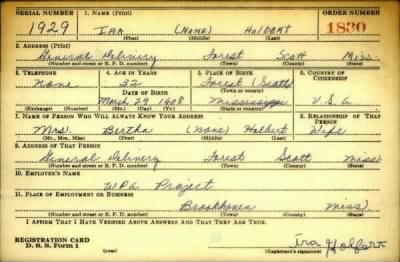 SERIAL NUMBER 1. NAME (Print) ORDER NUMBER
1929 Ira (None) Holbert 1830
(First) (Middle) (Last)
2. ADDRESS (Print)
General Delivery Forest Scott Miss
(Number and street or R. F. D. number) (Town) (County) (State)
3. TELEPHONE 4. AGE IN YEARS 5. PLACE OF BIRTH 6. COUNTRY OF CITIZENSHIP
None 32 Forest (Scott)
DATE OF BIRTH (Town or county)
March 29 1908 Mississippi U.S.A.
(Exchange) (Number) (Mo.) (Day) (Yr.) (State or country)
7. NAME OF PERSON WHO WILL ALWAYS KNOW YOUR ADDRESS 8. RELATIONSHIP OF THAT PERSON
Mrs. Bertha (None) Holbert Wife
(Mr., Mrs., Miss) (First) (Middle) (Last)
9. ADDRESS OF THAT PERSON
General Delivery Forest Scott Miss
(Number and street or R. F. D. number) (Town) (County) (State)
10. EMPLOYER'S NAME
WPA Project
11. PLACE OF EMPLOYMENT OR BUSINESS
Brookhaven Miss
(Number and street or R. F. D. number) (Town) (County) (State)
I AFFIRM THAT I HAVE VERIFIED ABOVE ANSWERS AND THAT THEY ARE TRUE.
REGISTRATION CARD
D. S. S. Form 1 Ira
(over) (Registrant's signature)